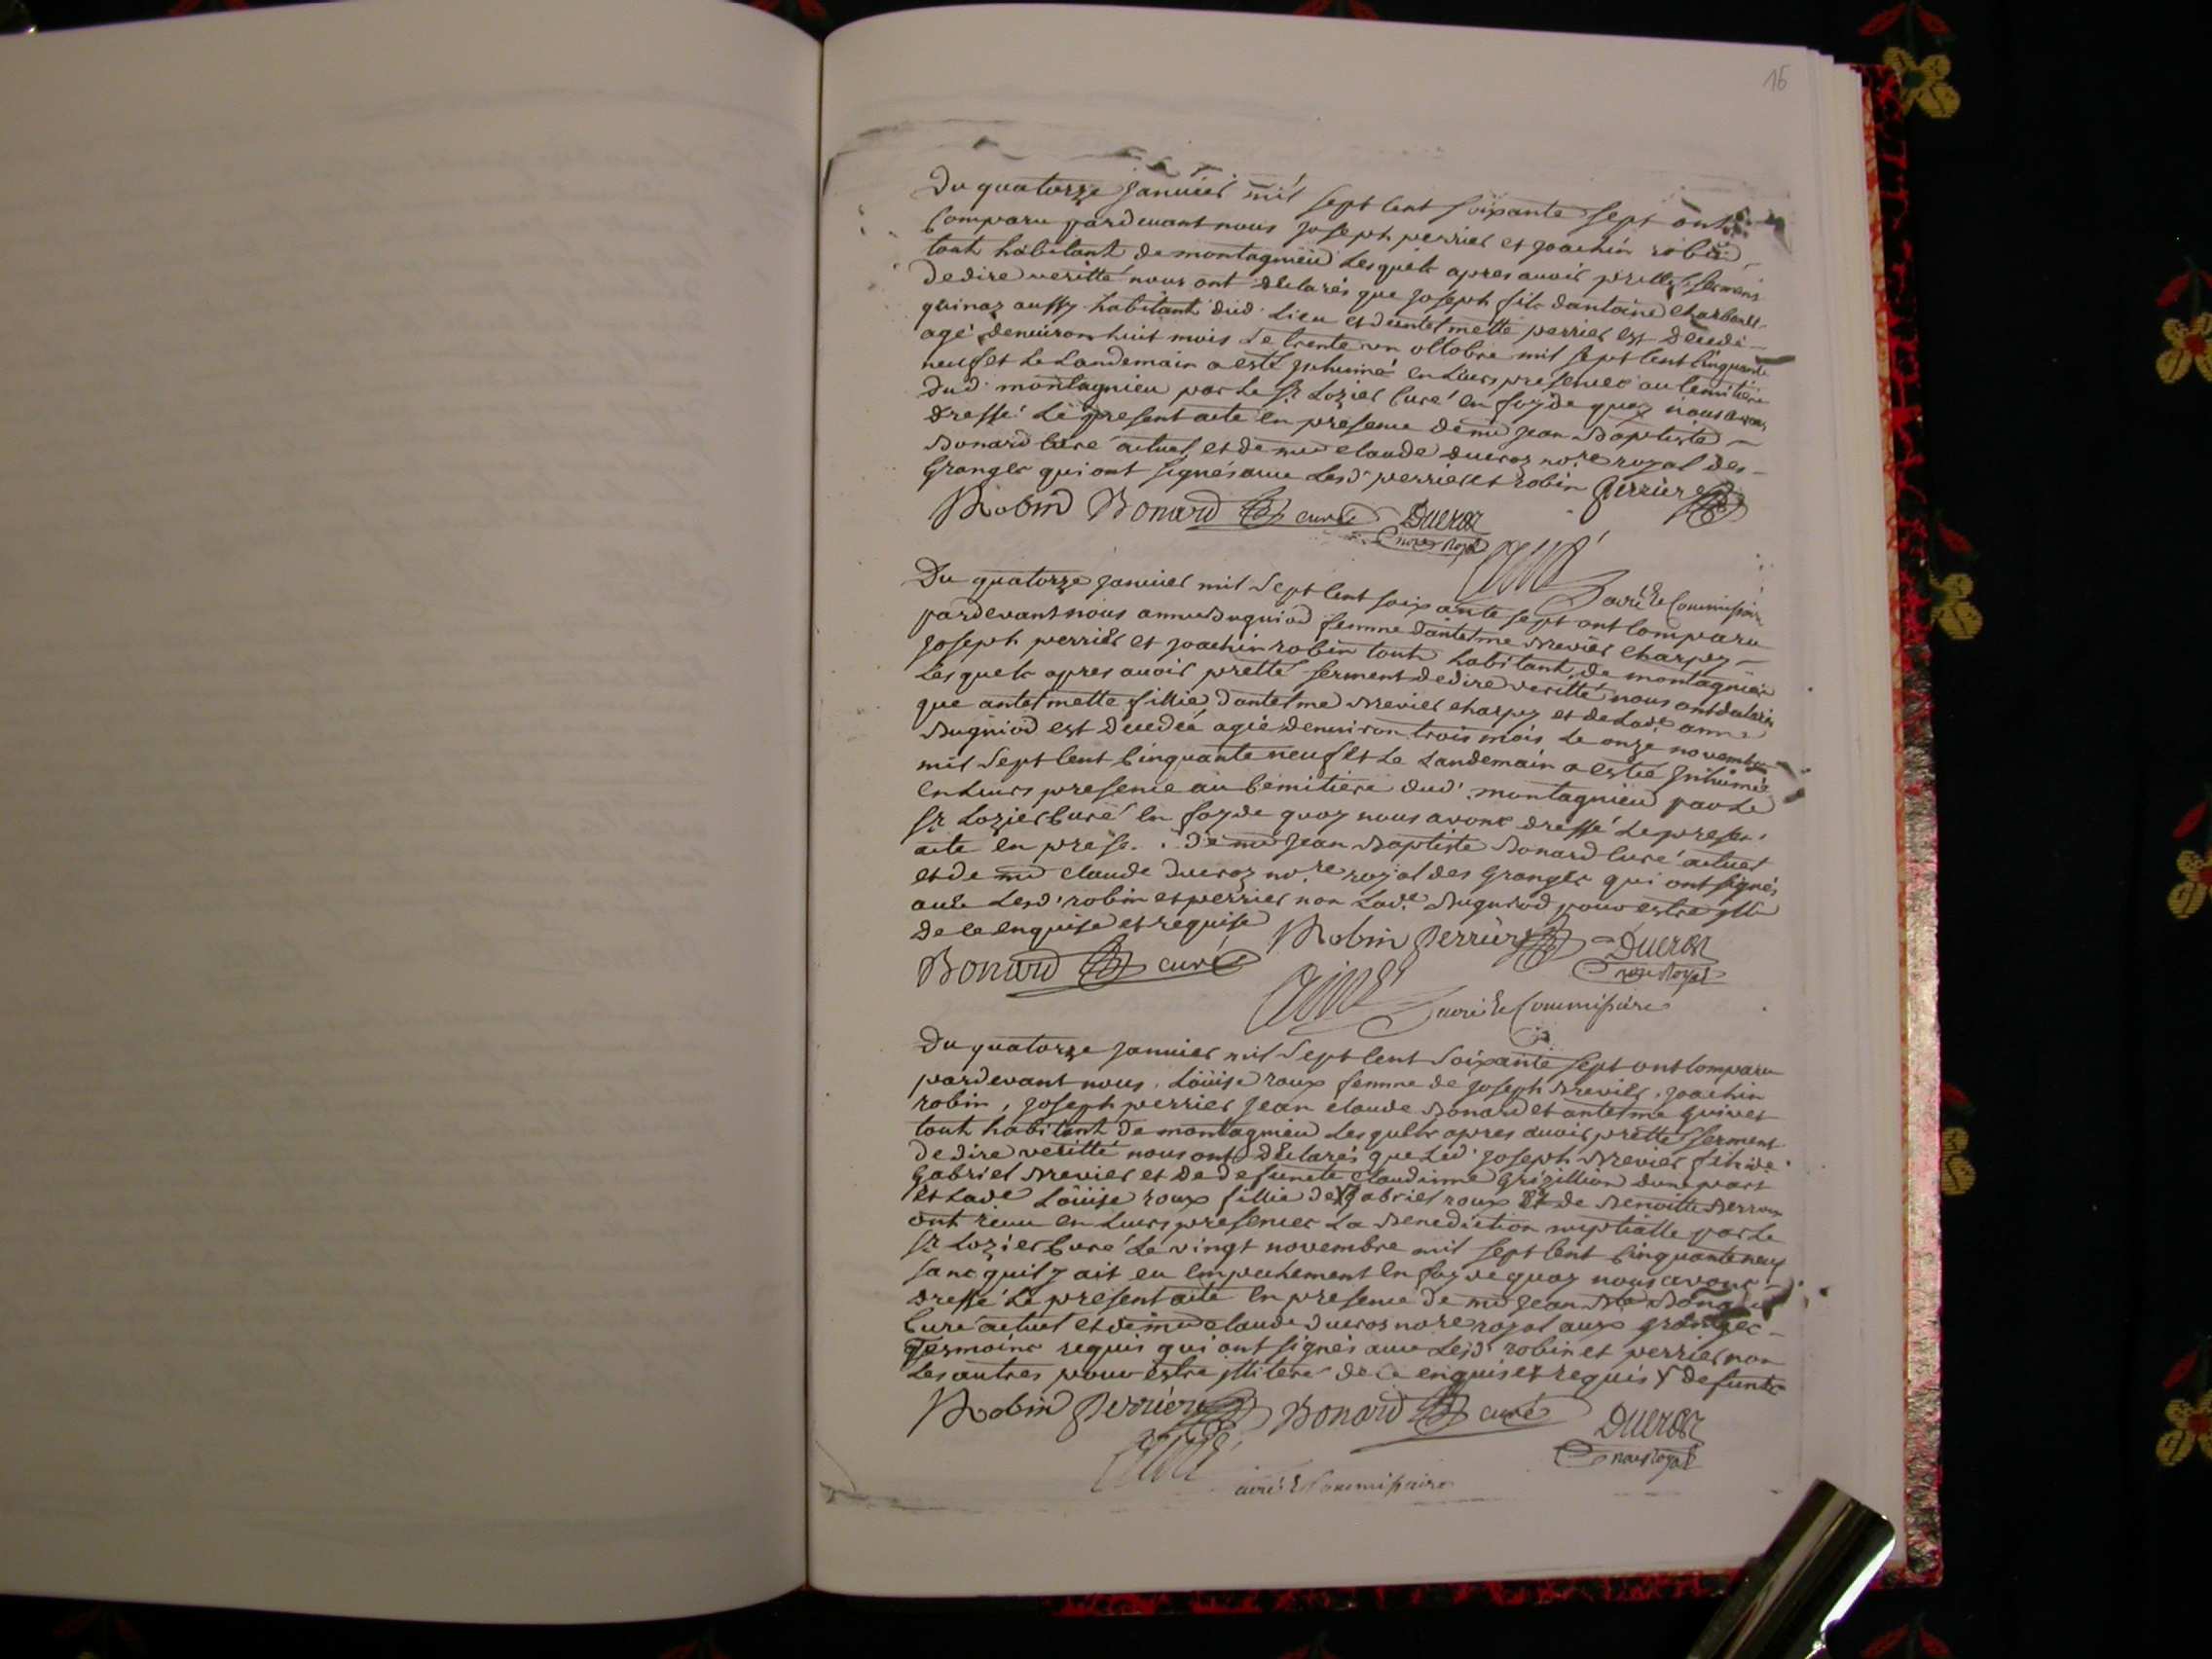 16
Du quatorze janvier mil sept cent soixante sept ont
comparu pardevant nous joseph perrier et joachin robin
tout habitant de montagnieu lesquels apres avoir pretté serment
de dire veritté nous ont déclarés que joseph fils dantoine charbonel
quinaz aussy habitant dud. lieu et dantelmette perrier est decedé
agé denviron huit mois le trente un octobre mil sept cent cinquante
neuf et le landemain a esté jnhumé en leurs presences au cemitiere
dud. montagnieu par le Sr. Lozier curé en foy de quoy nous avons
dressé le present acte en presence de me jean Baptiste
Bonard curé actuel et de me claude ducroz nore royal des
Granges qui ont signés avec lesd. perrier et robin Perrier
Robin Bonard curé Ducroz
nore Royal
Cavé le Commissaire
Du quatorze janvier mil sept cent soixante sept ont comparu
pardevant nous anne Buguiod femme dantelme Brevier charpy
joseph perrier et joachin robin tout habitant de montagnieu
lesquels apres avoir pretté serment de dire veritté nous ont declarés
que antelmette fillie dantelme Brevier charpy et de lade anne
Buguiod est decedeé agée denviron trois mois le onze novembre
mil sept cent cinquante neuf et le landemain a estée jnhumée
en leurs presence au cemitiere dud. montagnieu par le
Sr Lozier curé en foy de quoy nous avons dressé le present
acte en prese. de me jean Baptiste Bonard curé actuel
et de me claude ducroz nore royal des Granges qui ont signés
avec lesd. robin et perrier non lade Buguiod pour estre jllit
de ce enquise et requise Robin Perrier Ducroz
Bonard curé nore Royal
Cavé le Commissaire
Du quatorze janvier mil sept cent soixante sept ont comparu
pardevant nous Loüise roux femme de joseph Brevier, joachin
robin, joseph perrier jean claude Bonard et antelme quivet
tout habitant de montagnieu lesquels apres avoir pretté serment
de dire veritté nous ont déclarés que led. joseph Brevier fils de
Gabriel Brevier et de defuncte Claudinne Grigillion dune part
et lade Loüise roux fillie de Gabriel roux et de Benoitte Berroux
ont reçu en leurs presences la Benediction nuptialle par le
Sr Lozier curé le vingt novembre mil sept cent cinquante neuf
sans quil y ait eu empechement en foy de quoy nous avons
dressé le present acte en presence de me jean Bte Bonard
curé actuel et de me claude ducros nore royal aux granges
Tesmoins requis qui ont signés avec lesd. robin et perrier non
les autres pour estre jlliterés de ce enquis et requis X defunts
Robin Perrier Bonard curé Ducroz
nore Royal
Cavé le Commissaire